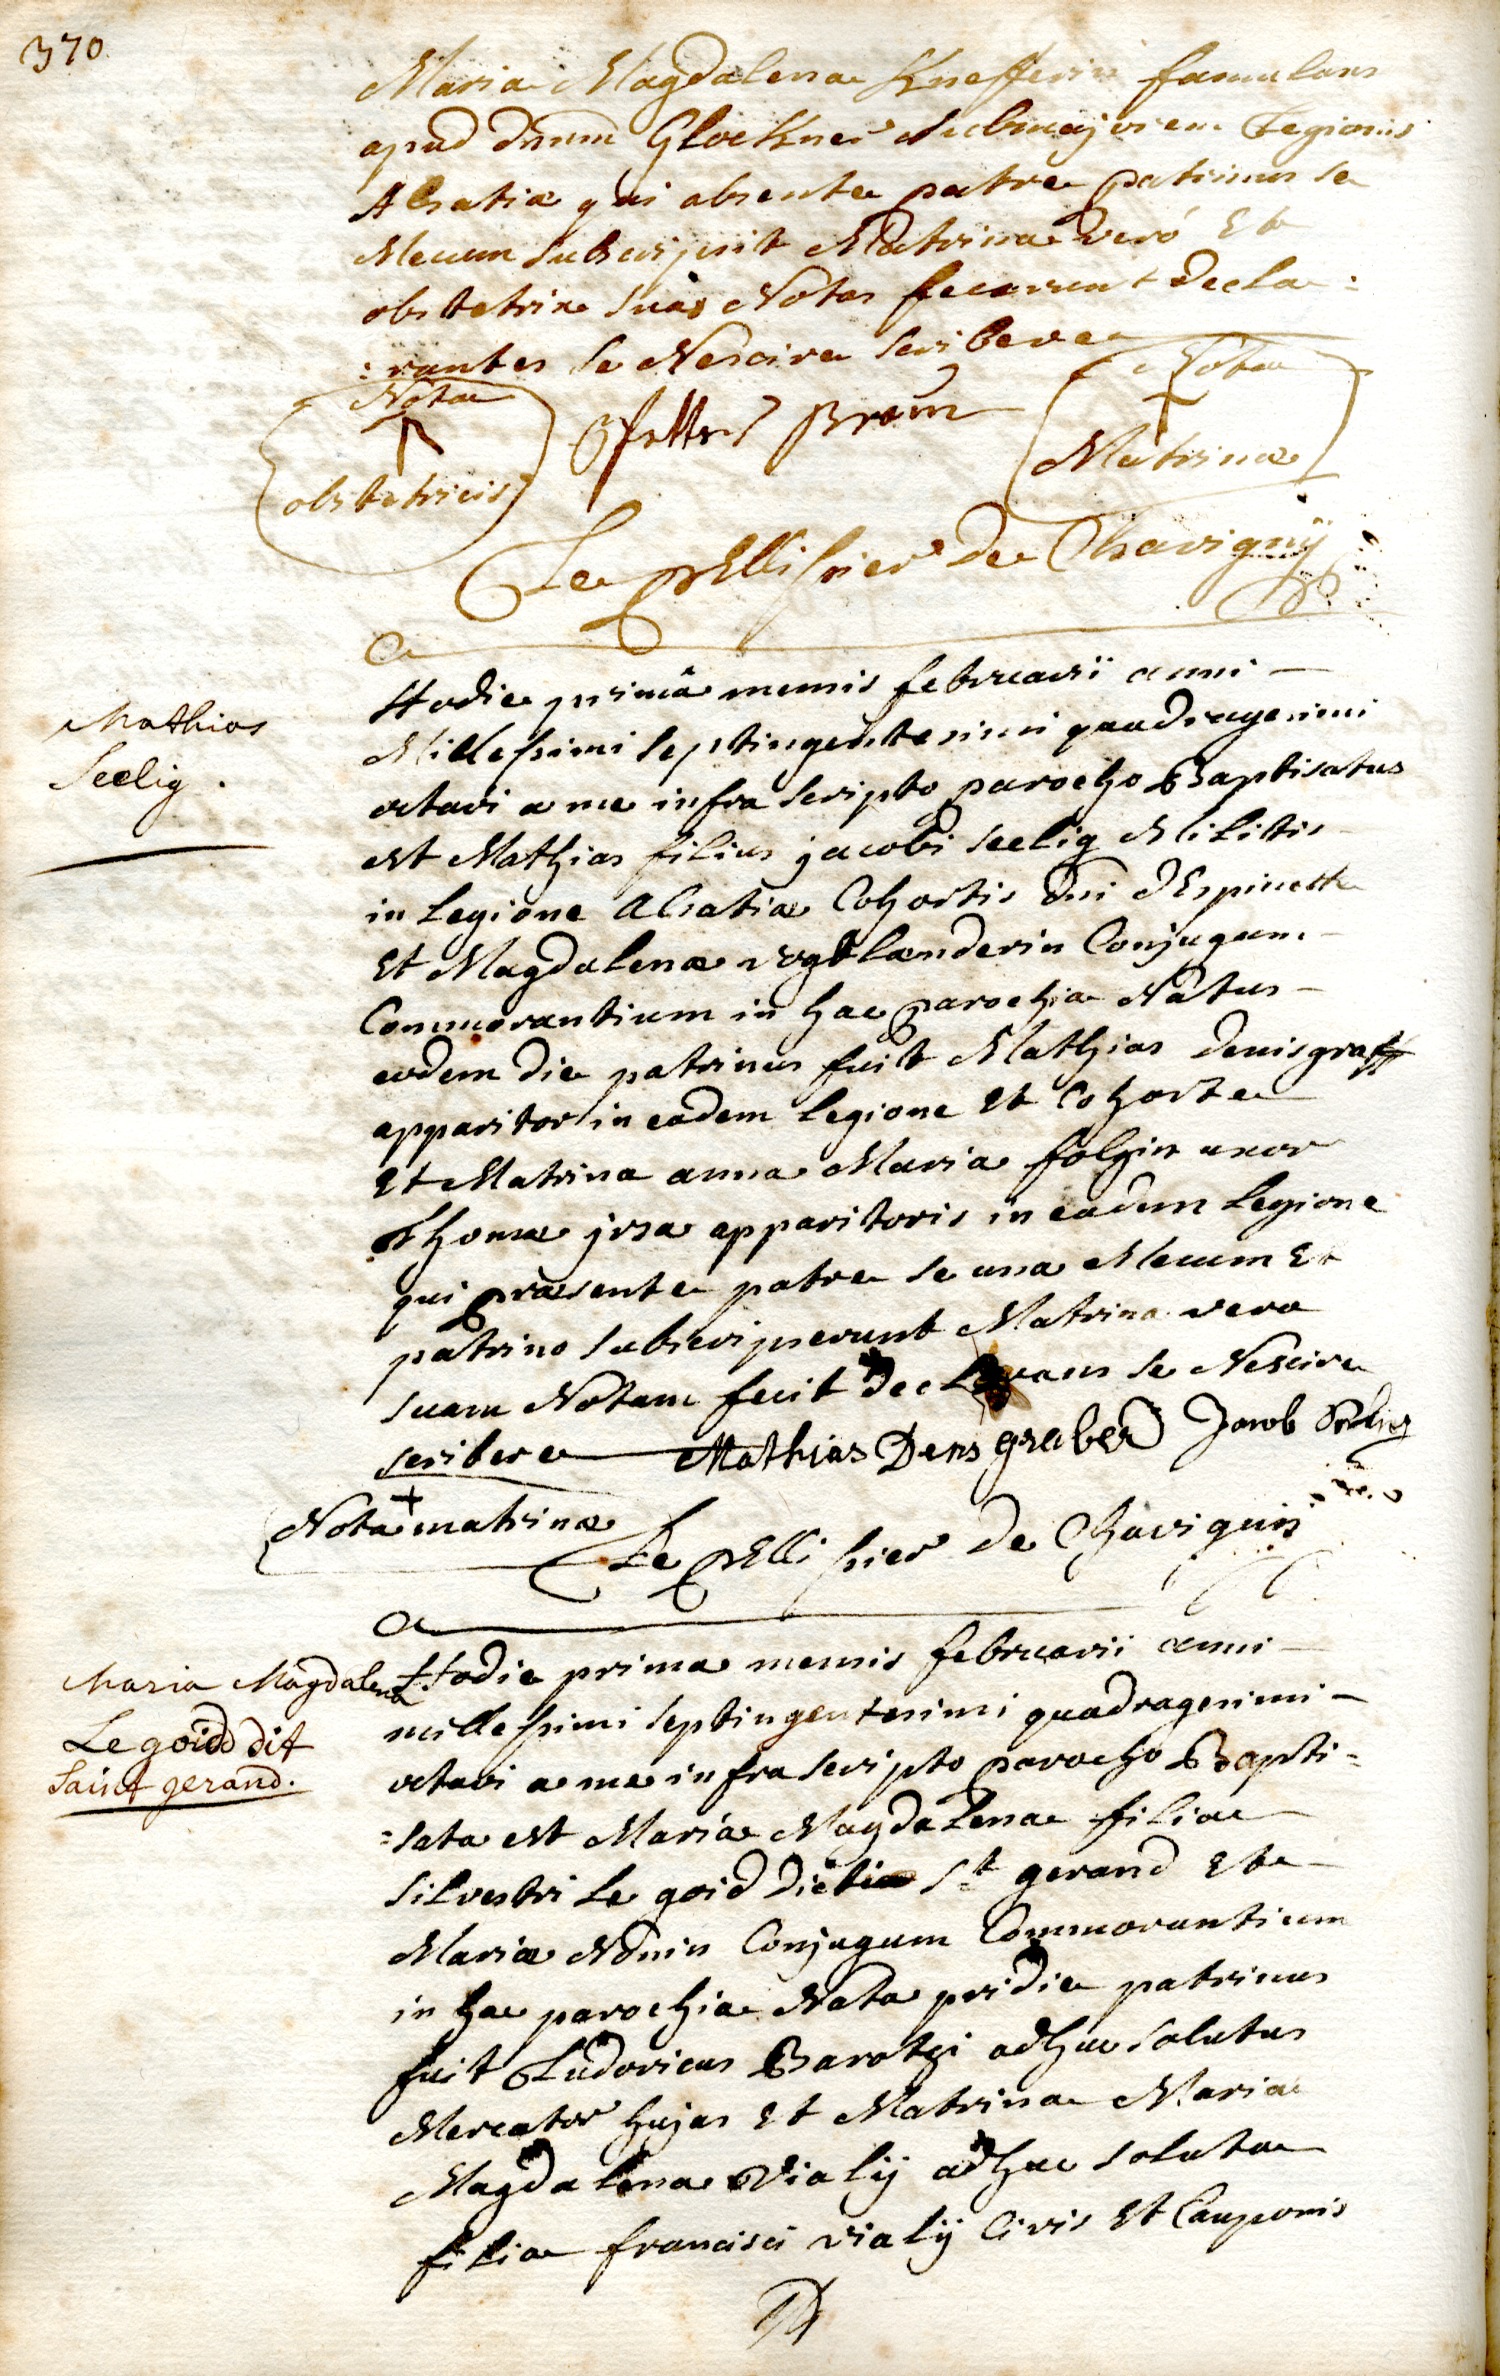 370
Maria Magdalena Knefferin famulans
apud dnum Glockner submajorem Legionis
Alsatiæ qui absente patre patrinus se
Mecum subscripsit Matrina verò Et
obstetrix suas Notas fecerunt decla:
:rantes se Nescire scribere
Nota
obstetricis
Pfetter Braun
Nota
Matrinæ
Le pEllissier De Chavignÿ
Mathias
Seelig.
Hodie primâ mensis februarii anni
Millessimi septingentesimi quadragesimi
octavi a me infra scripto parocho Baptisatus
est Mathias filius jacobi seelig Militis
in Legione Alsatiæ Cohortis dni dEspinette
Et Magdalenæ vogtlænderin Conjugum
Commorantium in hac parochia Natus
eodem die patrinus fuit Mathias denisgraff
apparitor in eadem Legione Et Cohorte
Et Matrina anna Maria folzin uxor
Thomæ jrsa apparitoris in eadem Legione
qui præsente patre se una Mecum Et
patrino subscripserunt Matrina vero
suam Notam fecit declarans se Nescire
scribere Mathias Dens graber Jacob Selig
Nota + matrinæ
Le pEllissier De Chavignÿ
Maria Magdalena
Le goidd dit
Saint gerand.
Hodie prima mensis februarii anni
millessimi septingentesimi quadragesimi
octavi a me infra scripto parocho Bapti=
=sata est Maria Magdalena filia
silvestri Le goid dicti St gerand Et
Mariæ Nonin Conjugum Commorantium
in hac parochia Nata pridie patrinus
fuit Ludovicus Barothi adhuc solutus
Mercator hujas Et Matrina Maria
Magdalena Vialÿ adhuc soluta
filia francisci vialÿ Civis Et Cauponis